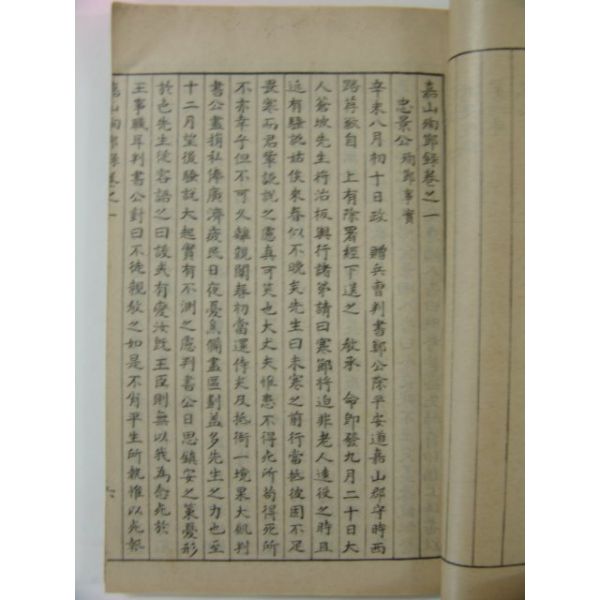 嘉山殉節錄卷之一
忠景公殉節事實
辛未八月初十日政 贈兵曹判書鄭公除平安道嘉山郡守時西
路荐 自 上有除署經下送之 敎承 命卽發九月二十日大
人蒼坡先生將治板輿行諸弟請曰寒節將迫非老人遠役之時且
近有騷說姑俟來春似不晩矣先生曰未寒之前行當抵彼固不足
畏寒而君輩說說之慮眞可笑也大丈夫惟患不得死所苟得死所
不亦幸乎但不可久離親闈春初當還侍矣及抵衙一境果大飢判
書公盡捐私俸廣濟疲民日夜憂焦備盡區劃蓋多先生之力也至
十二月望後騷說大起實有不測之慮判書公日思鎭安之策憂形
於色先生從容語之曰設或有變汝旣王臣則無以我爲念死於
王事職耳判書公對曰不徒親敎之如是不肖平生所執惟以死報
嘉山殉節錄卷之一